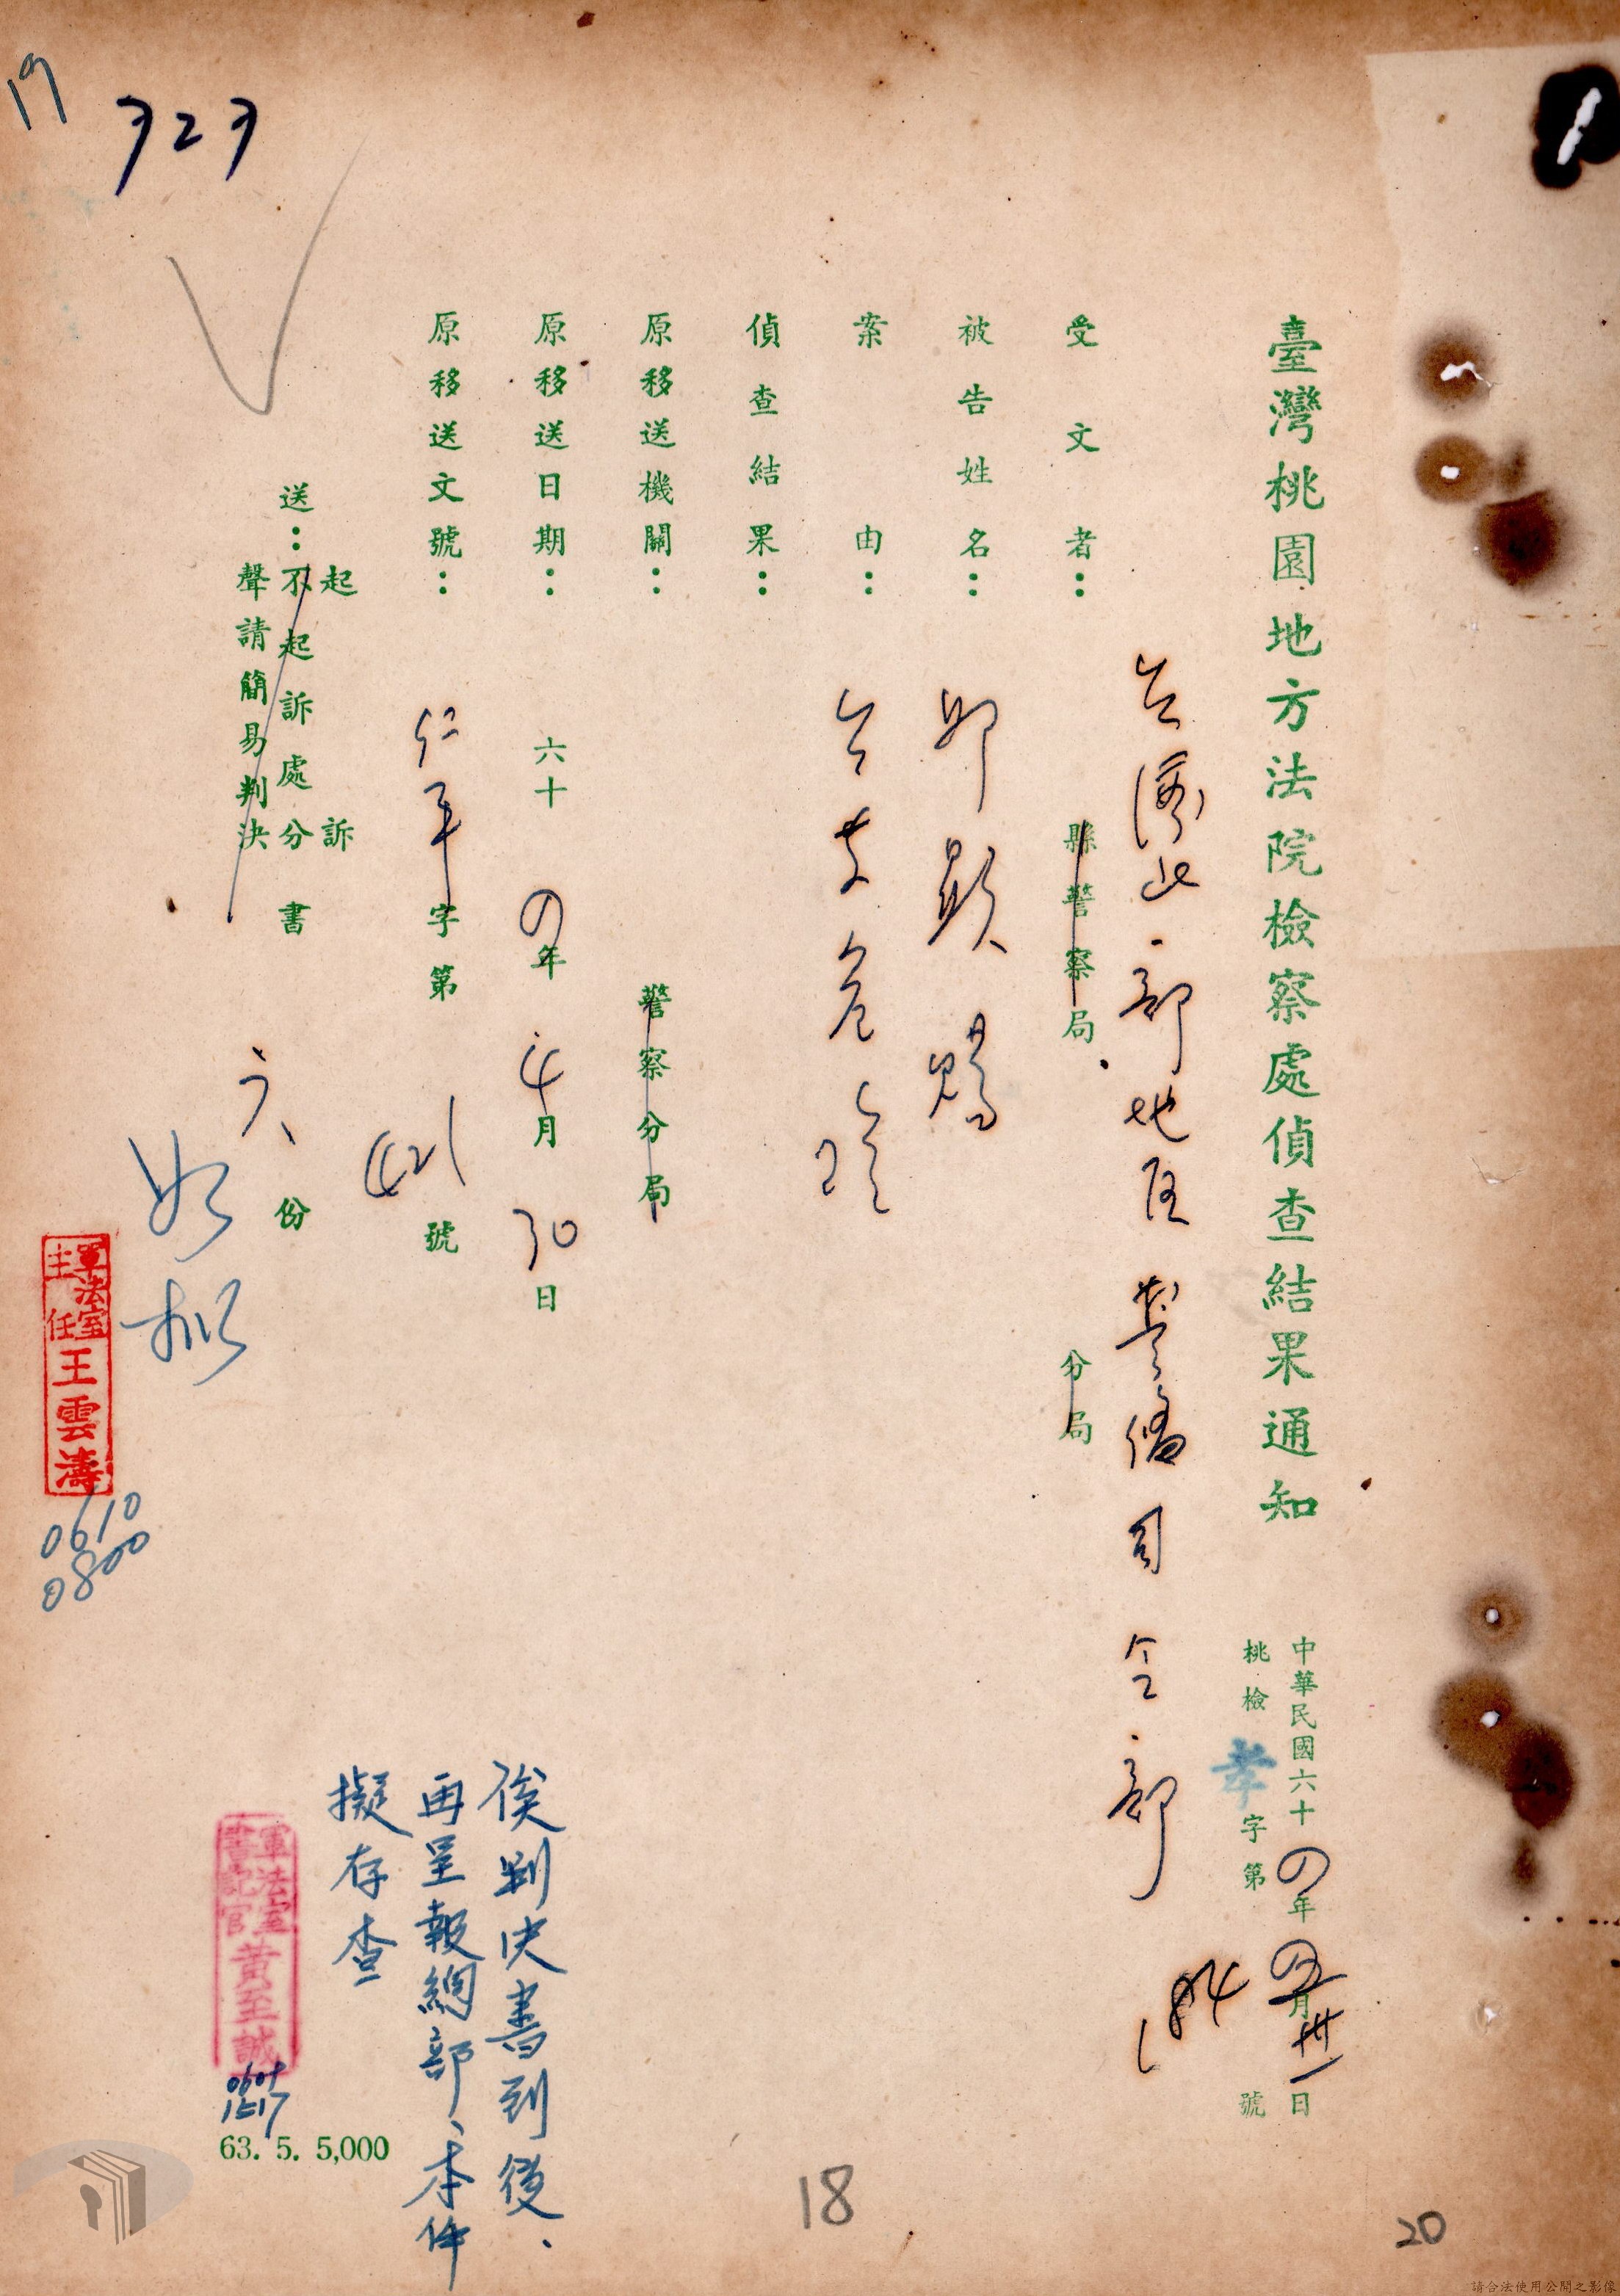 臺灣桃園地方法院檢察處偵查結果通知
中華民國六十四年 月 日
桃檢孝字第 號
受文者：
台灣北部地區警備司令部
縣警察局 分局
被告姓名：
案由：
偵查結果：
原移送機關： 警察分局
原移送日期： 六十四年4月30日
原移送文號： 仁平字第421號
起訴
送：不起訴處分書 六份
聲請簡易判決
俟判決書到後、
再呈報總部、本件
擬存查
軍法室書記官黃至誠
1517
如擬
軍法室主任王雲濤
0610
0800
63. 5. 5,000
323
19
18
20
請合法使用公開之影像